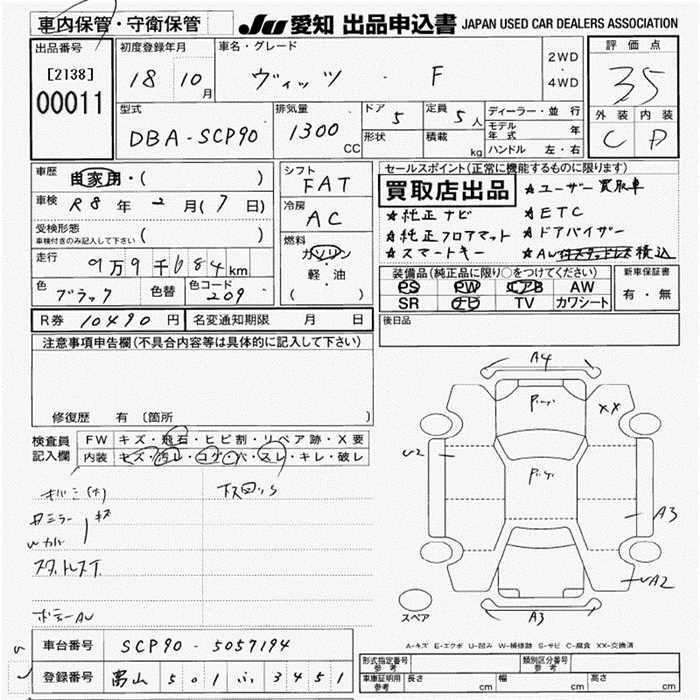 車内保管・守衛保管
JU 愛知 出品申込書 JAPAN USED CAR DEALERS ASSOCIATION
出品番号
[2138]
00011
初度登録年月
18 10月
車名・グレード
ヴィッツ ・ F
2WD
・
4WD
評価点
3.5
外装 内装
C D
型式
DBA-SCP90
排気量
1300 CC
ドア 5
定員 5人
形状
積載 kg
ディーラー・並行
モデル年式 年
ハンドル 左・右
車歴 自家用・( )
車検 R8年 2月(7日)
受検形態
車検付きのみ記入して下さい ( )
走行 9万9千684km
色 ブラック 色替 色コード 209
シフト
FAT
冷房
AC
燃料
ガソリン
・
軽・油
( )
セールスポイント(正常に機能するものに限ります)
買取店出品
★ユーザー買取車
★純正ナビ ★ETC
★純正フロアマット ★ドアバイザー
★スマートキー ★AW付スタッドレス積込
装備品(純正品に限り○をつけてください)
PS PW エアB AW
SR ナビ TV カワシート
新車保証書
有・無
R券 10490円 名変通知期限 月 日
後日品
注意事項申告欄(不具合内容等は具体的に記入して下さい)
修復歴 有 〔箇所
検査員記入欄
FW キズ・飛石・ヒビ割・リペア跡・X要
内装 キズ・汚レ・コゲ・穴・スレ・キレ・破レ
スタッドレスT
ボデーAW
A4
XX
U2
A3
A2
A3
スペア
A-キズ E-エクボ U-凹み W-補修跡 S-サビ C-腐食 XX-交換済
車台番号 SCP90-5057194
登録番号 富山 501 ふ 3451
形式指定番号 参考
類別区分番号 参考
車庫証明用 参考 長さ cm 幅 cm 高さ cm